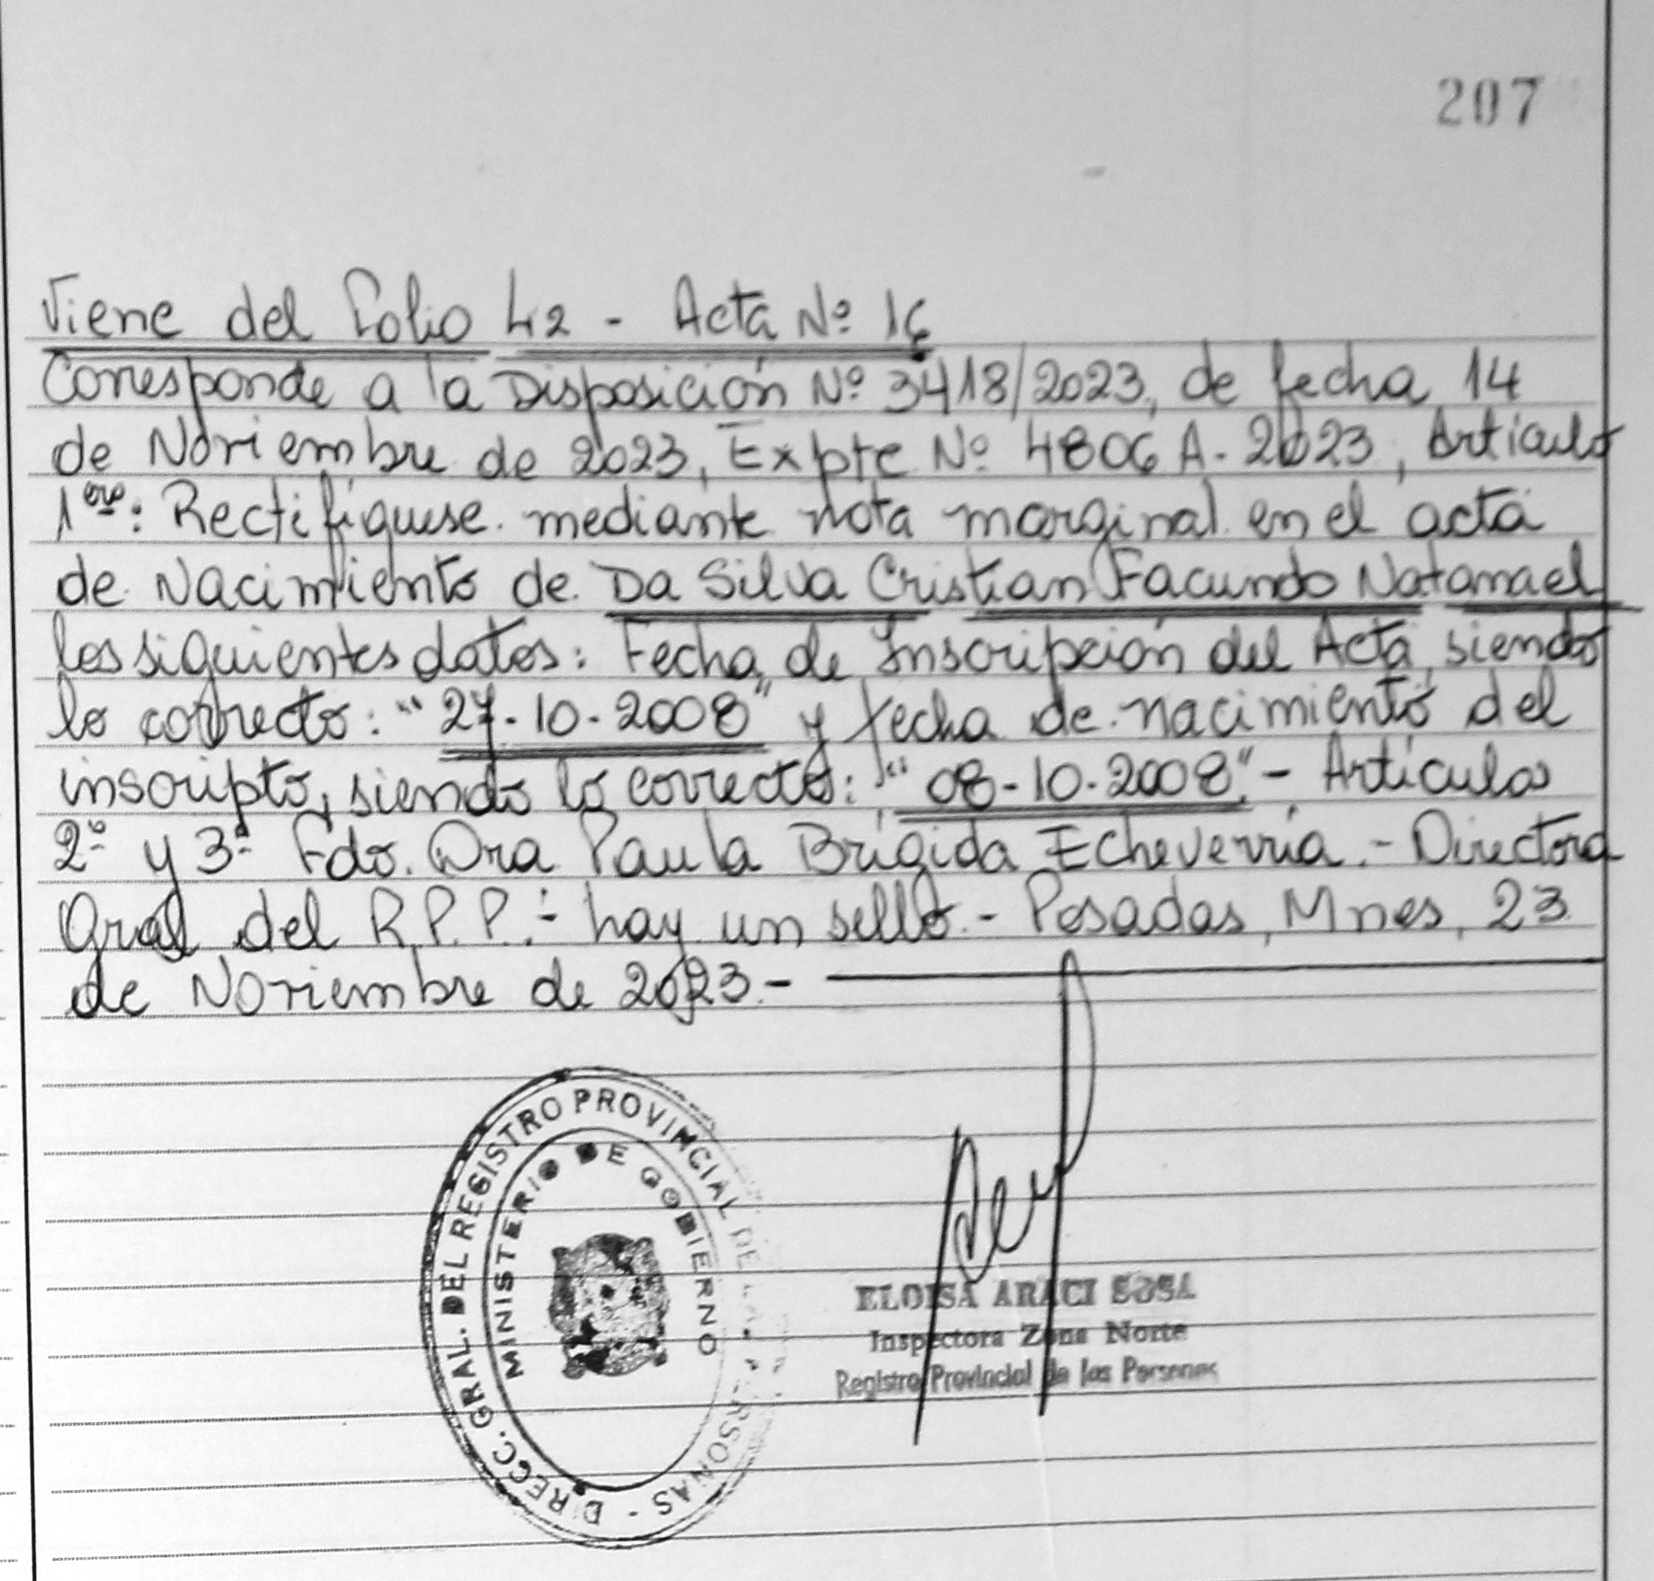 207
Viene del Folio 42 - Acta Nº 16
Corresponde a la Disposición Nº 3418/2023, de fecha 14
de Noviembre de 2023, Expte Nº 4806 A - 2023, Artículo
1ero: Rectifíquese mediante nota marginal en el acta
de Nacimiento de Da Silva Cristian Facundo Natanael
los siguientes datos: Fecha de Inscripción del Acta, siendo
lo correcto: "27-10-2008" y fecha de nacimiento del
inscripto, siendo lo correcto: "08-10-2008".- Artículos
2º y 3º Fdo. Dra Paula Brígida Echeverría.- Directora
Gral del R.P.P.- hay un sello.- Posadas, Mnes, 23
de Noviembre de 2023.-
DIRECC. GRAL. DEL REGISTRO PROVINCIAL DE LAS PERSONAS -
MINISTERIO DE GOBIERNO
ELOISA ARACI SOSA
Inspectora Zona Norte
Registro Provincial de las Personas